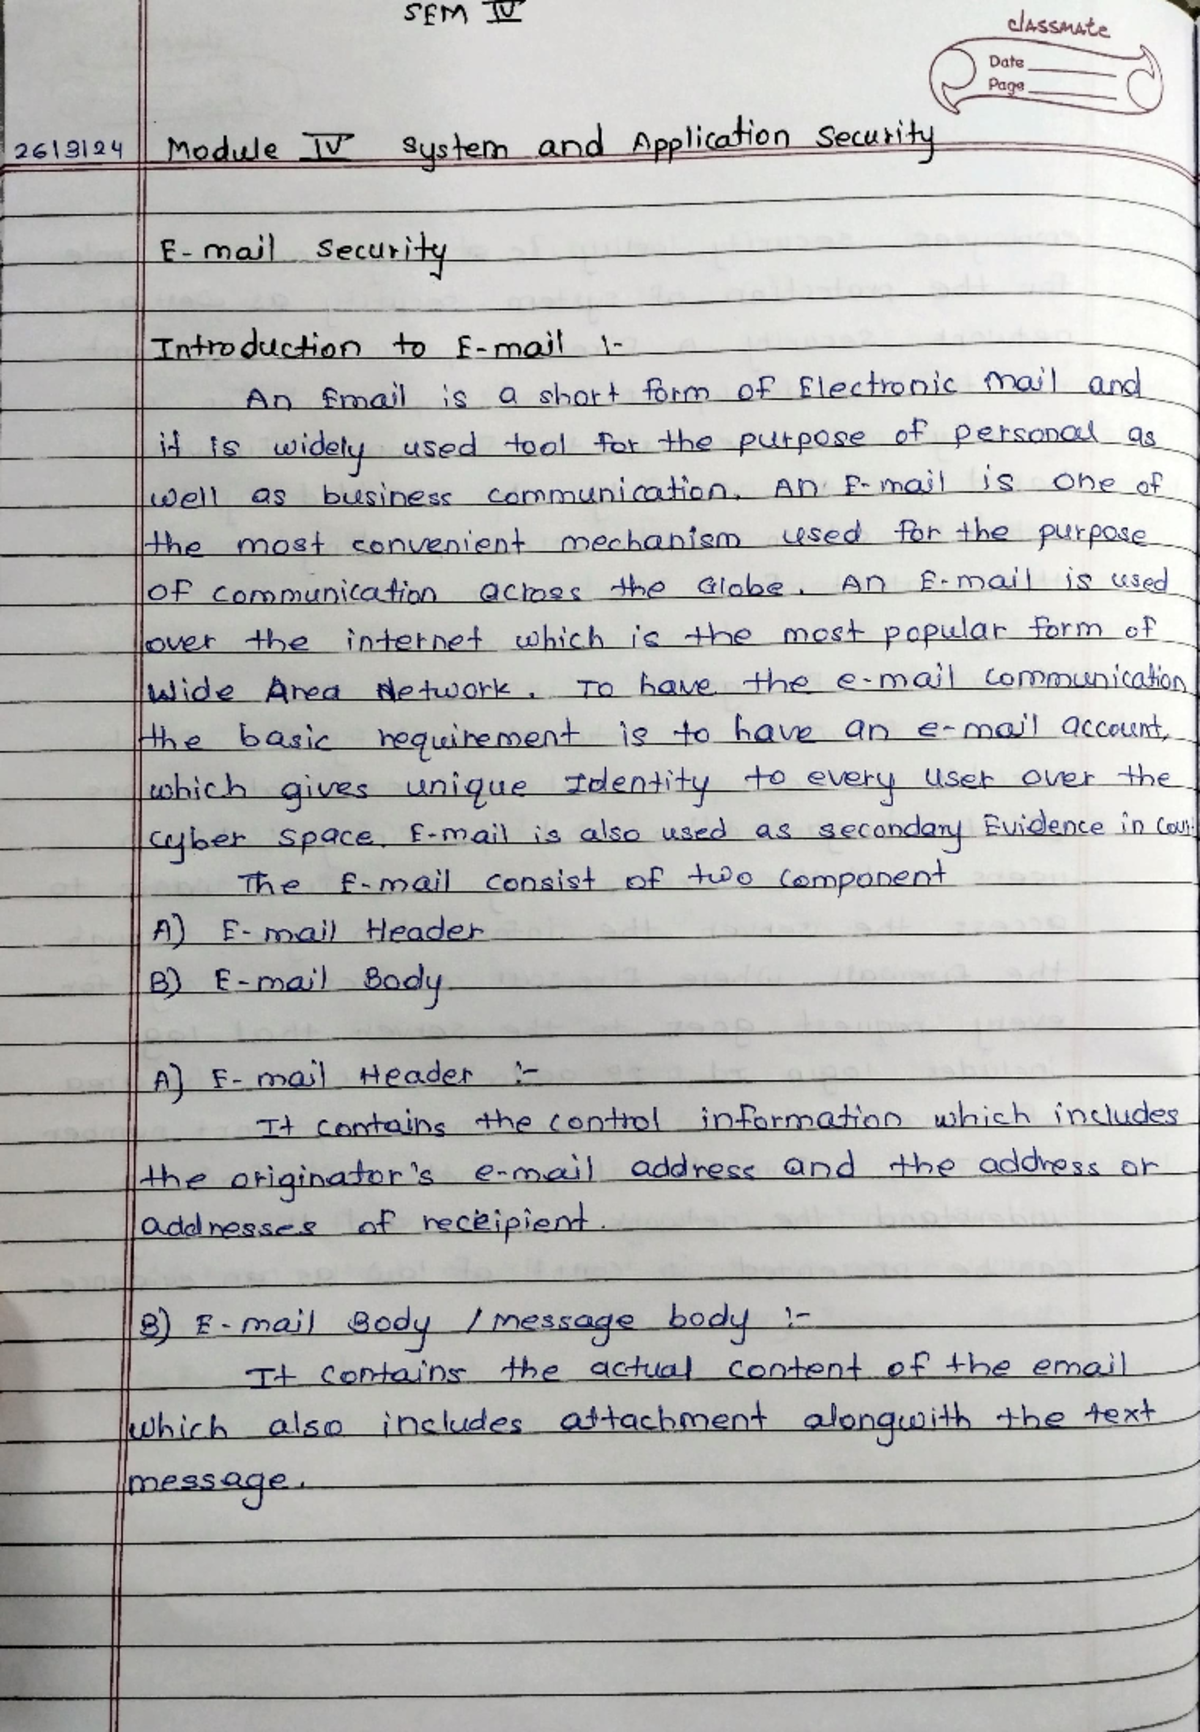 SEM IV
classmate
Date
Page
26/3/24 Module IV System and Application Security
E-mail Security
Introduction to E-mail :-
An Email is a short form of Electronic mail and
it is widely used tool for the purpose of personal as
well as business communication. An E-mail is one of
the most convenient mechanism used for the purpose
of communication across the Globe. An E-mail is used
over the internet which is the most popular form of
Wide Area Network. To have the e-mail communication
the basic requirement is to have an e-mail account,
which gives unique Identity to every user over the
cyber space. E-mail is also used as secondary Evidence in
The E-mail consist of two component
A) E-mail Header
B) E-mail Body
A) E-mail Header :-
It contains the control information which includes
the originator's e-mail address and the address or
addresses of receipient.
B) E-mail Body / message body :-
It contains the actual content of the email
which also includes attachment alongwith the text
message.